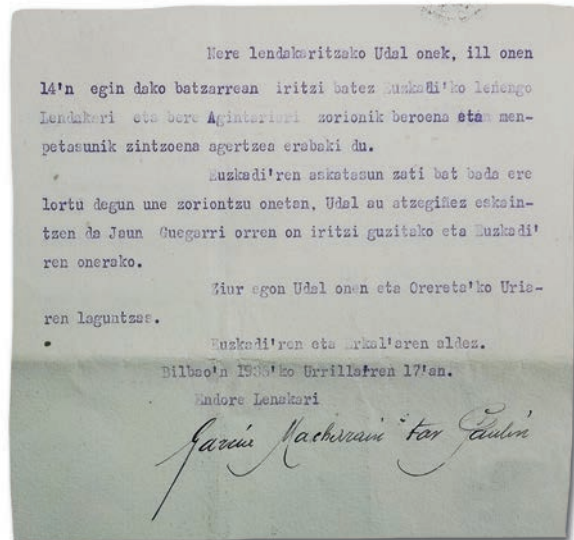 Nere lendakaritzako Udal onek, ill onen
14'n egin dako batzarrean iritzi batez Euzkadi'ko leñengo
Lendakari eta bere Agintariari zorionik beroena eta men-
petasunik zintzoena agertzea erabaki du.
Euzkadi'ren askatasun zati bat bada ere
lortu degun une zoriontzu onetan, Udal au atzegiñez eskain-
tzen da Jaun Guegarri orren on iritzi guzitako eta Euzkadi'
ren onerako.
Ziur egon Udal onen eta Orereta'ko Uria-
ren laguntzas.
Euzkadi'ren eta Erkal'aren aldez.
Bilbao'n 1936'ko Urrillarren 17'an.
Endore Lenakari
Garcia Machirrain'tar Paulin